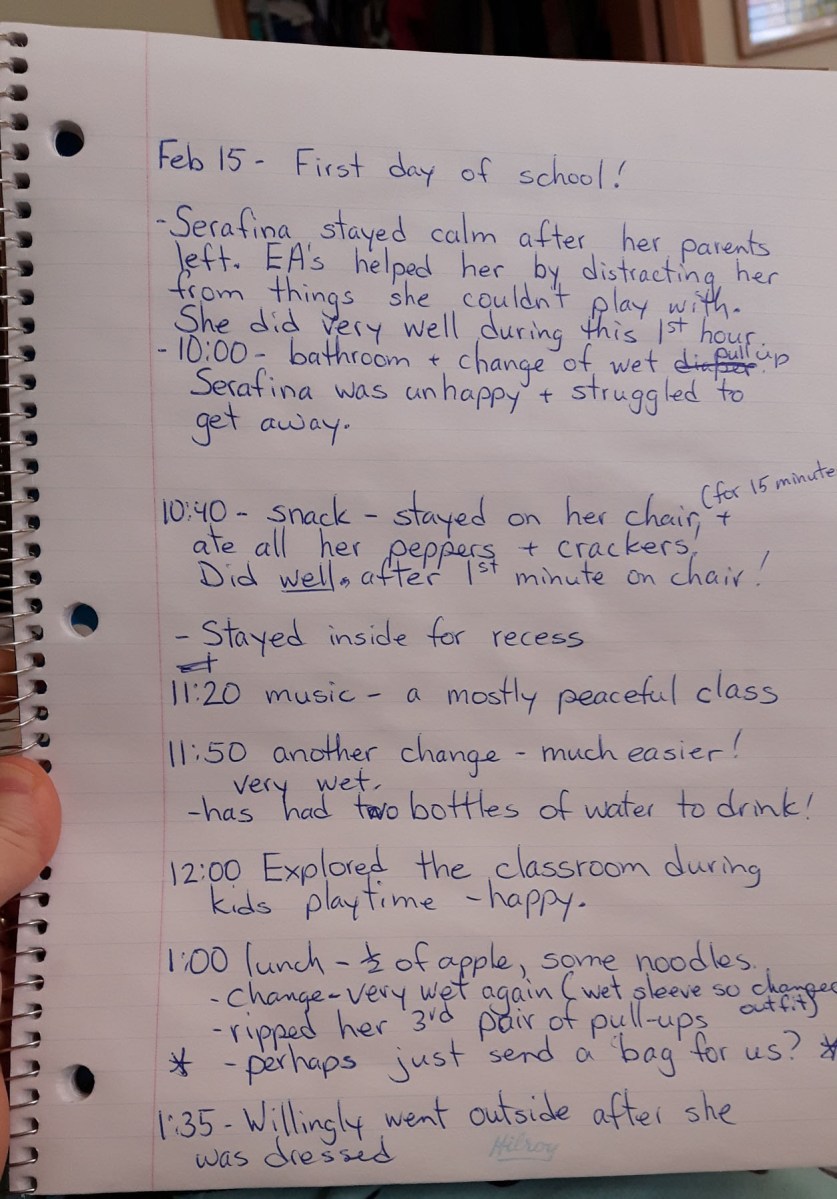 Feb 15 - First day of school!
- Serafina stayed calm after her parents
left. EA's helped her by distracting her
from things she couldn't play with.
She did very well during this 1st hour.
- 10:00 - bathroom + change of wet diaper pull up
Serafina was unhappy + struggled to
get away.
(for 15 minute
10:40 - snack - stayed on her chair, +
ate all her peppers + crackers,
Did well, after 1st minute on chair!
- Stayed inside for recess
11:20 music - a mostly peaceful class
11:50 another change - much easier!
very wet.
- has had two bottles of water to drink!
12:00 Explored the classroom during
kids playtime - happy.
1:00 lunch - ½ of apple, some noodles.
- change - very wet again (wet sleeve so changed
outfit)
- ripped her 3rd pair of pull-ups
* - perhaps just send a bag for us? *
1:35 - Willingly went outside after she
was dressed
Hilroy